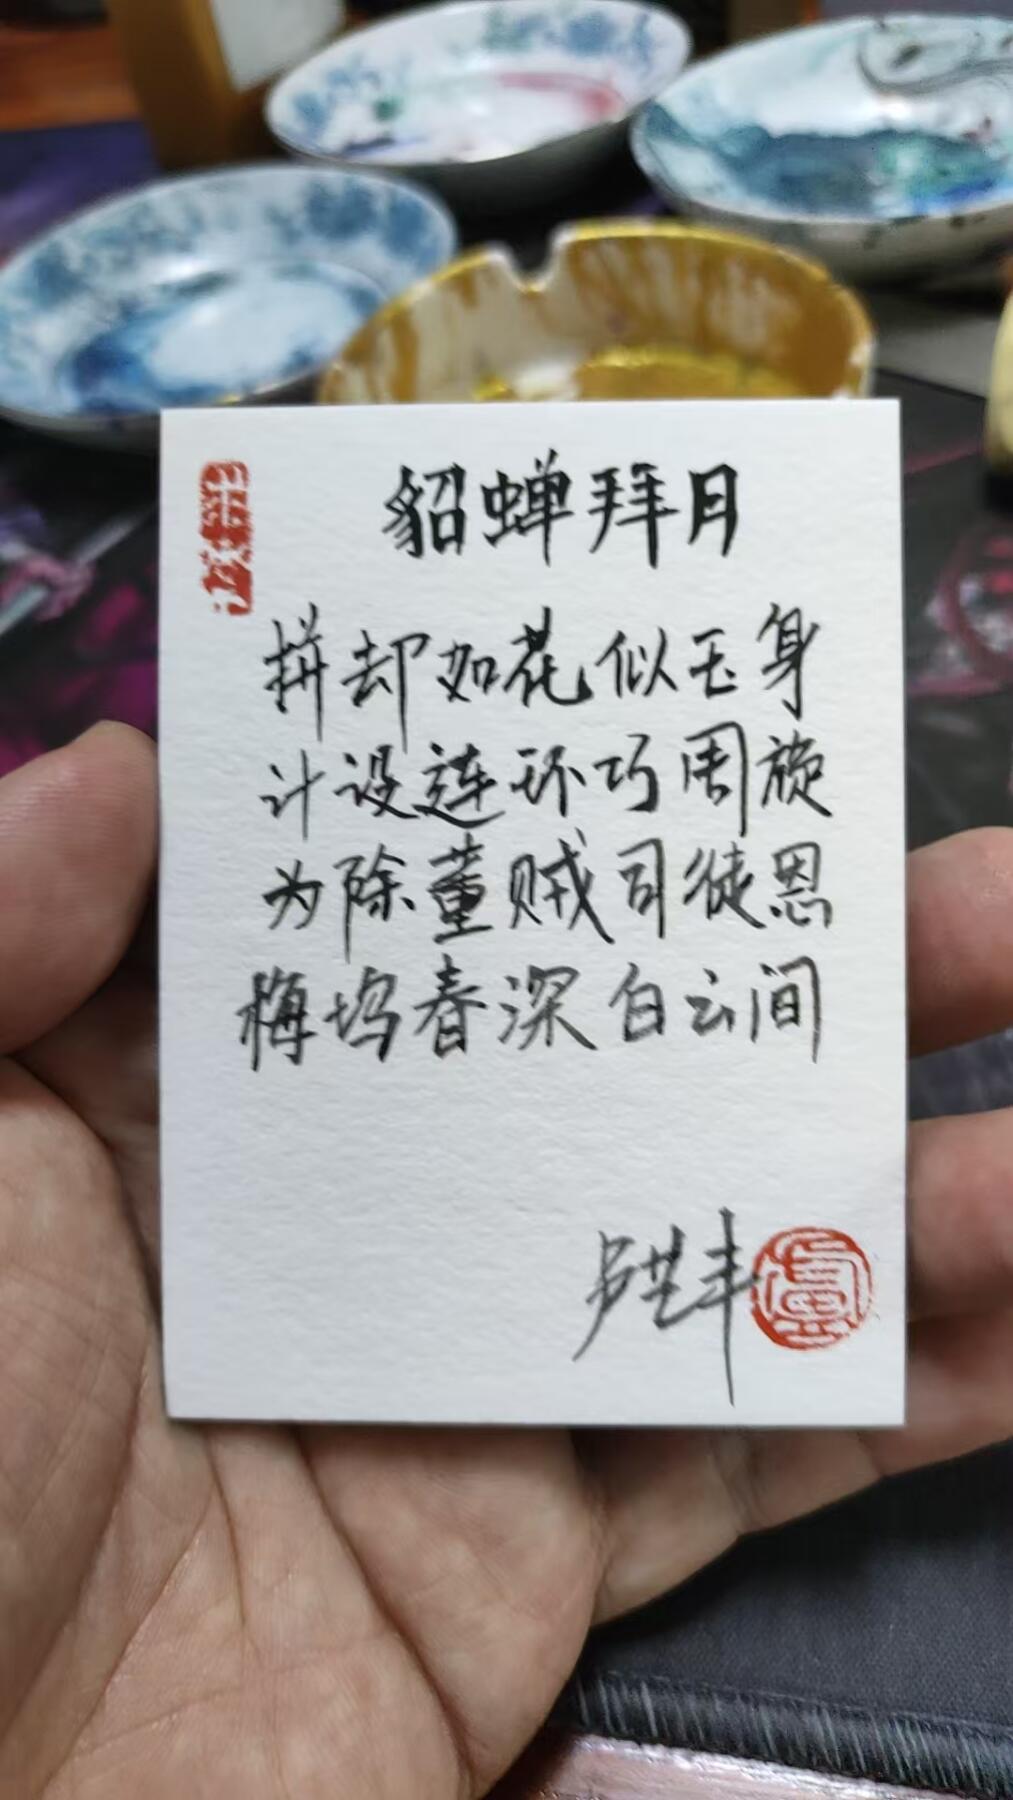 貂蝉拜月
拼却如花似玉身
计设连环巧周旋
为除董贼司徒恩
梅坞春深白云间